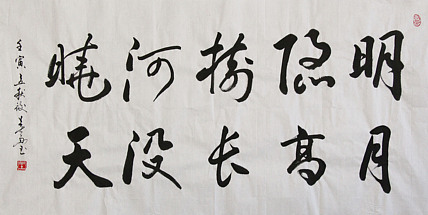 明月
隐高
树长
河没
晓天
壬寅立秋後